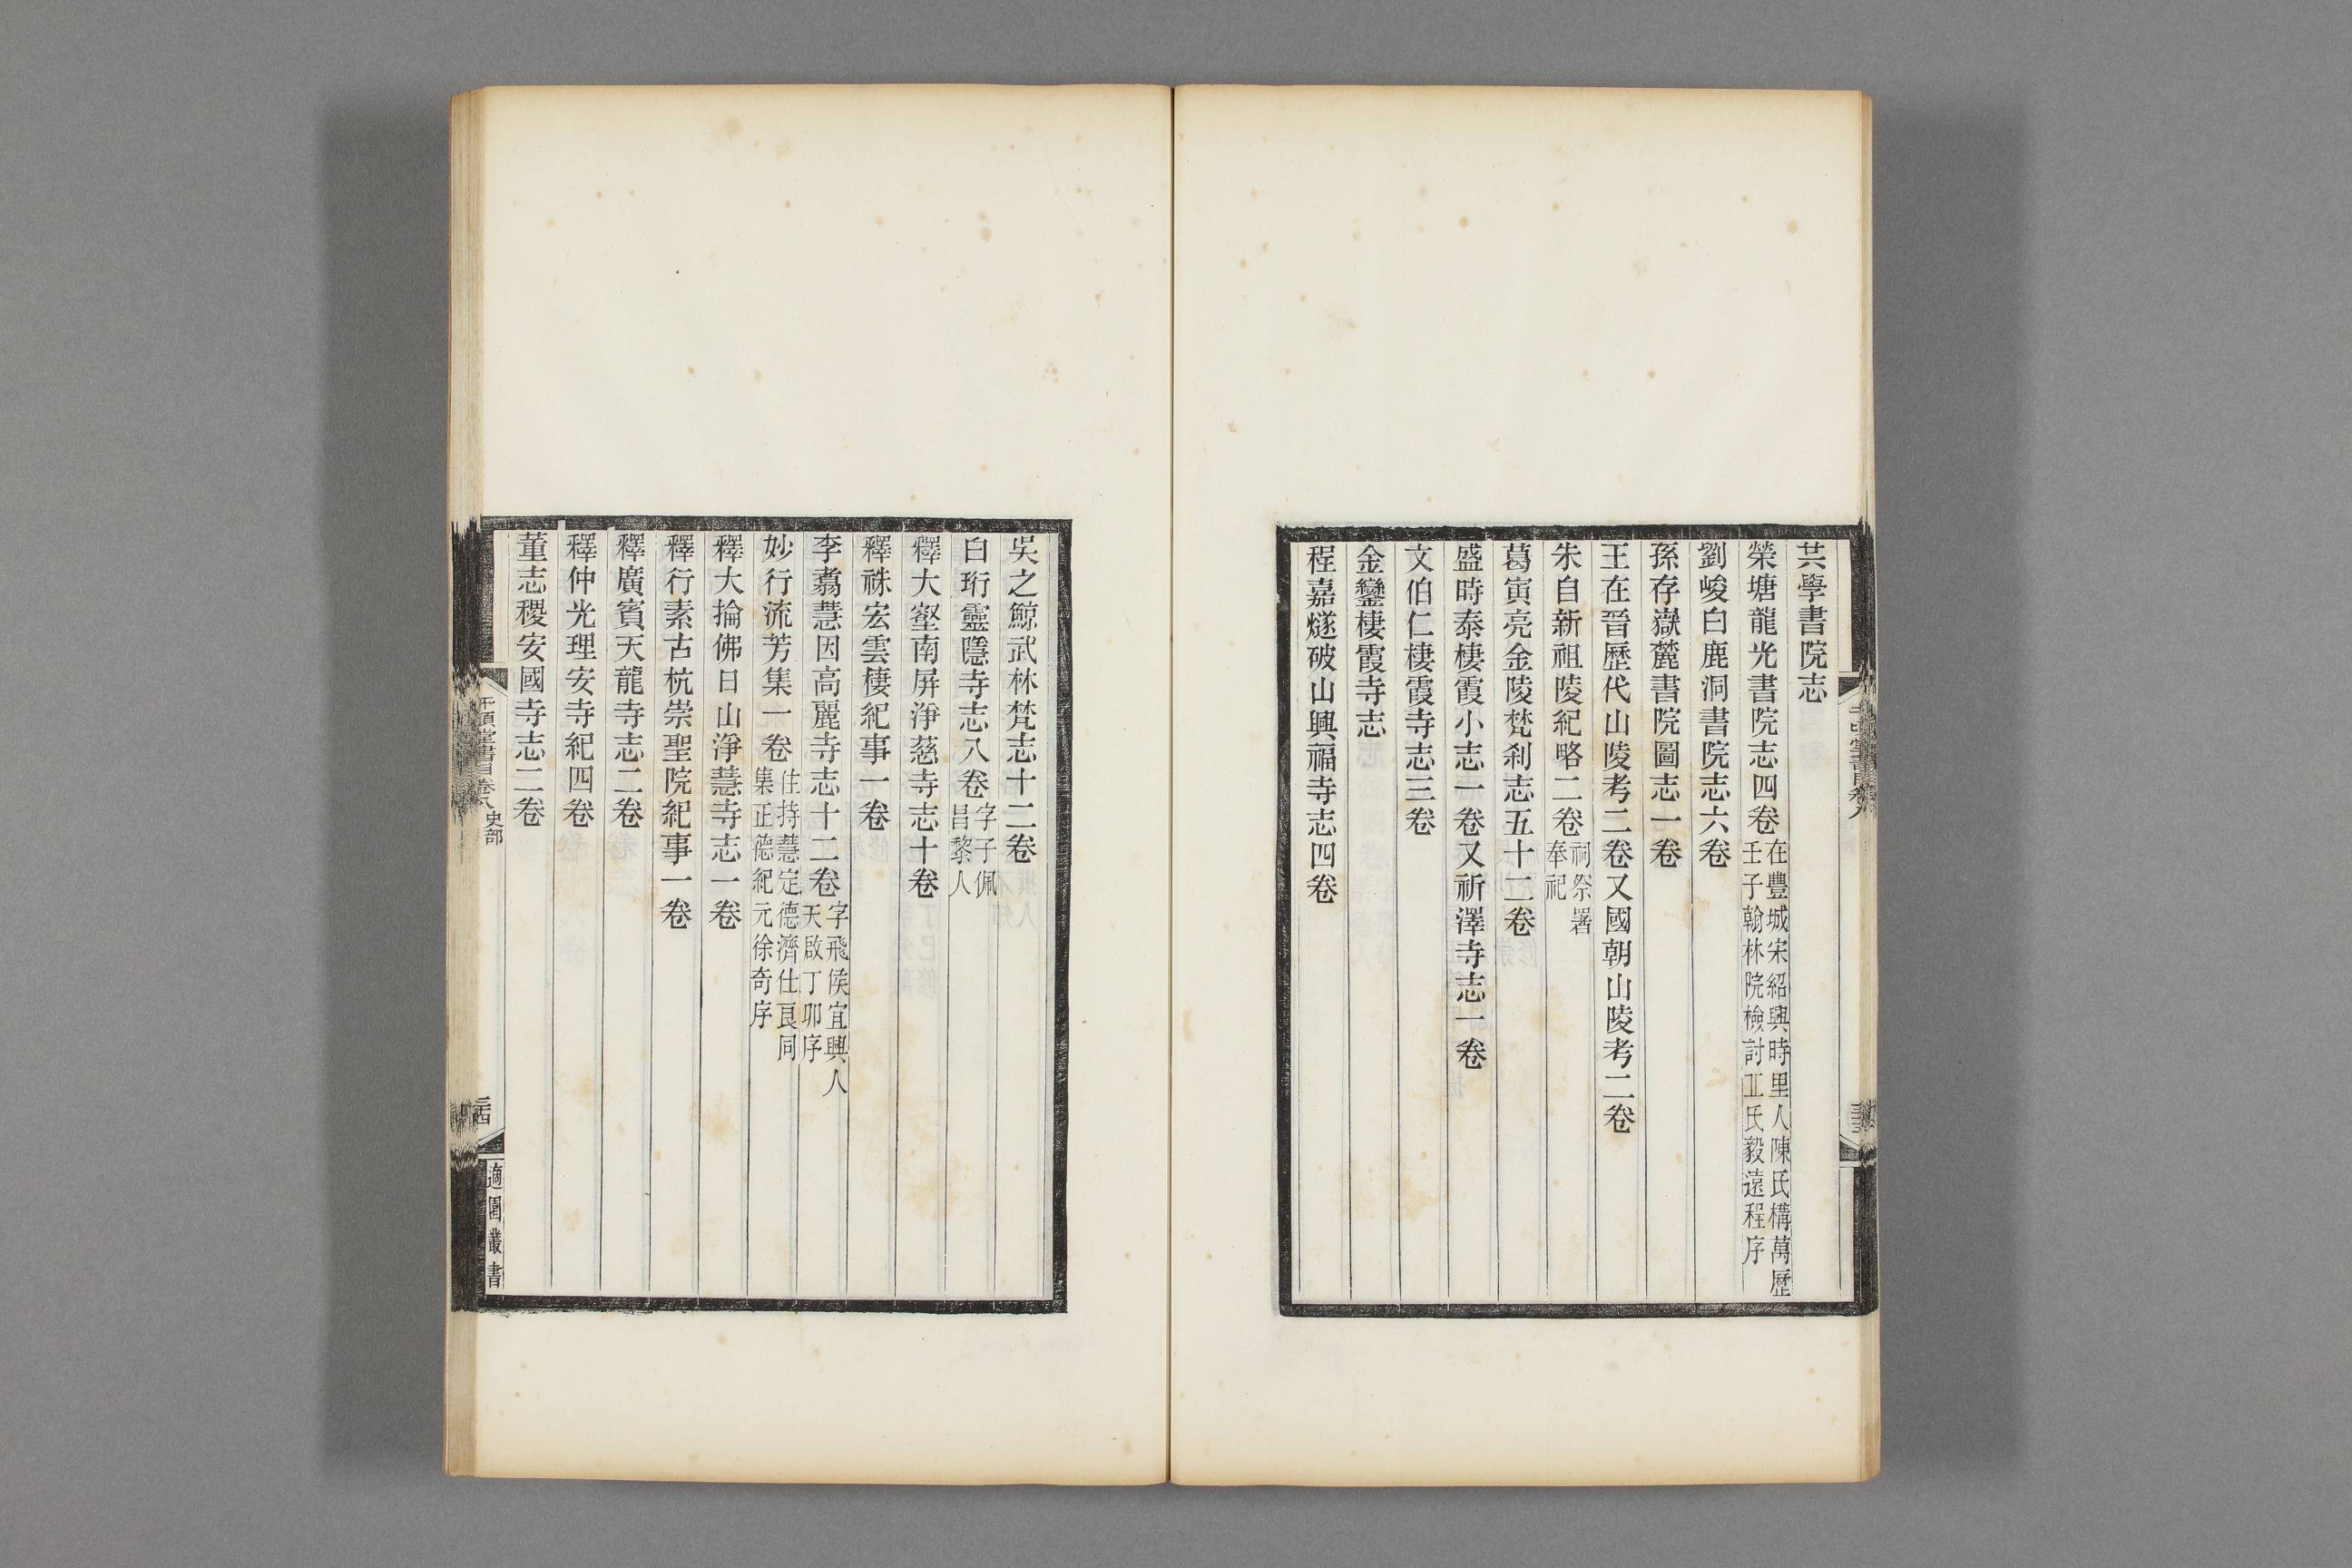 共學書院志
榮塘龍光書院志四卷在豐城宋紹興時里人陳氏構萬歷壬子翰林院檢討㠪氏毅遠程序
劉峻白鹿洞書院志六卷
孫存嶽麓書院圖志一卷
王在晉歷代山陵考二卷又國朝山陵考二卷
朱自新祖陵紀略二卷祠祭署奉祀
葛寅亮金陵梵刹志五十二卷
盛時泰棲霞小志一卷又祈澤寺志一卷
文伯仁棲霞寺志三卷
金鑾棲霞寺志
程嘉燧破山興福寺志四卷
吳之鯨武林梵志十二卷
白珩靈隱寺志八卷字子佩昌黎人
釋大壑南屏淨慈寺志十卷
釋祩宏雲棲紀事一卷
李翥慧因高麗寺志十二卷字飛侯宜興人天啟丁卯序
妙行流芳集一卷住持慧定德濟仕良同集正德紀元徐奇序
釋大掄佛日山淨慧寺志一卷
釋行素古杭崇聖院紀事一卷
釋廣賓天龍寺志二卷
釋仲光理安寺紀四卷
董志稷安國寺志二卷
千頃堂書目卷八 史部
適園叢書